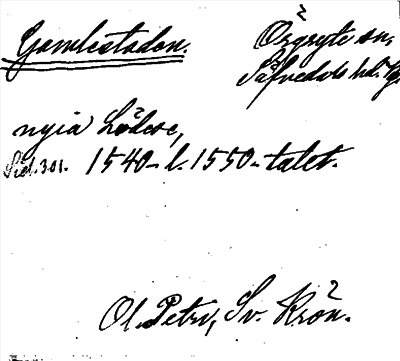 Gamlestaden.
Örgryte sn,
Säfvedals hd.
nyia Lödese,
Sid. 301. 1540- l. 1550-talet.
Ol. Petri, Sv. Krön.